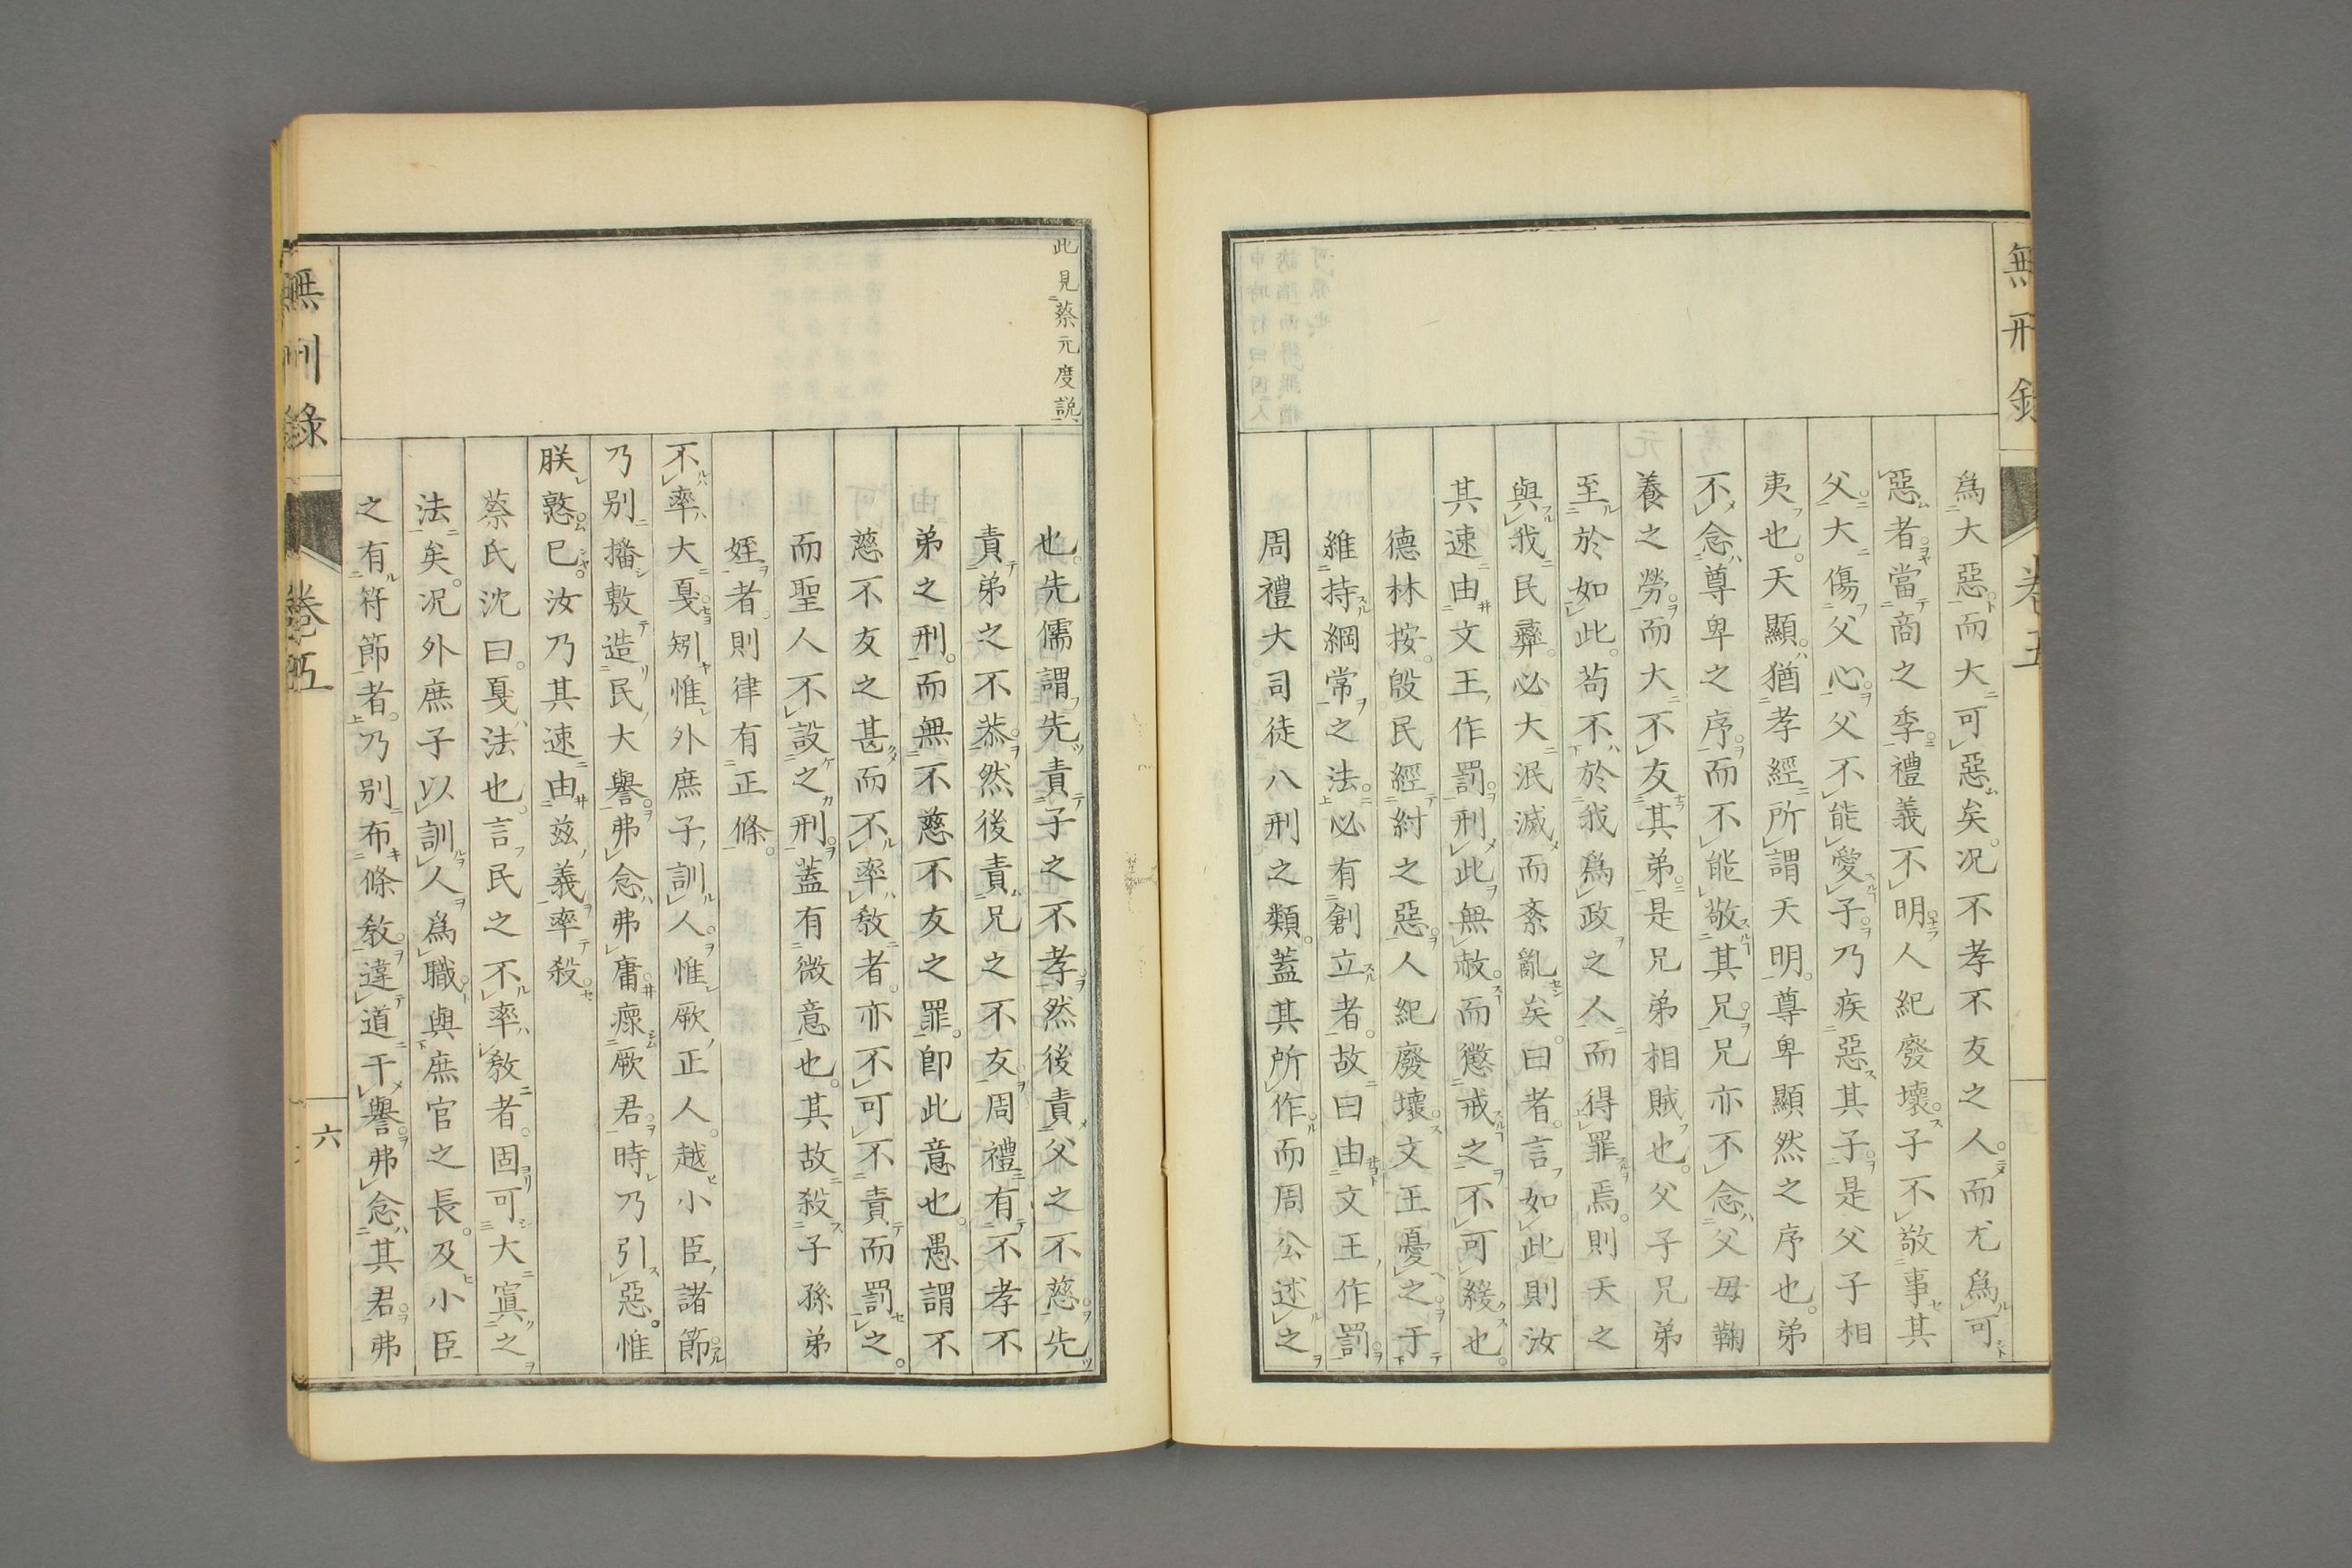 無刑錄
卷五
爲大惡而大可惡矣。况不孝不友之人。而尤爲可
惡者。當商之季。禮義不明。人紀廢壞。子不敬事其
父。大傷父心。父不能愛子。乃疾惡其子。是父子相
夷也。天顯。猶孝經所謂天明。尊卑顯然之序也。弟
不念尊卑之序。而不能敬其兄。兄亦不念父母鞠
養之勞。而大不友其弟。是兄弟相賊也。父子兄弟
至於如此。苟不於我爲政之人而得罪焉。則天之
與我民彝。必大泯滅而紊亂矣。曰者。言如此則汝
其速由文王作罰。刑此無赦。而懲戒之不可緩也。
德林按。殷民經紂之惡。人紀廢壞。文王憂之。于
維持綱常之法。必有創立者。故曰由文王作罰。
周禮大司徒八刑之類。蓋其所作。而周公述之
也。先儒謂先責子之不孝。然後責父之不慈。先
責弟之不恭。然後責兄之不友。周禮有不孝不
弟之刑。而無不慈不友之罪。卽此意也。愚謂不
慈不友之甚。而不率敎者。亦不可不責而罰之。
而聖人不設之刑。蓋有微意也。其故殺子孫弟
姪者。則律有正條。
不率大戛。矧惟外庶子訓人。惟厥正人。越小臣諸節。
乃別播敷造民大譽。弗念弗庸。瘝厥君。時乃引惡。惟
朕憝。已。汝乃其速由茲義率殺。
蔡氏沈曰。戛法也。言民之不率敎者。固可大寘之
法矣。况外庶子以訓人爲職。與庶官之長。及小臣
之有符節者。乃別布條敎。違道干譽。弗念其君。弗
此見蔡元度說
無刑錄
卷五
六